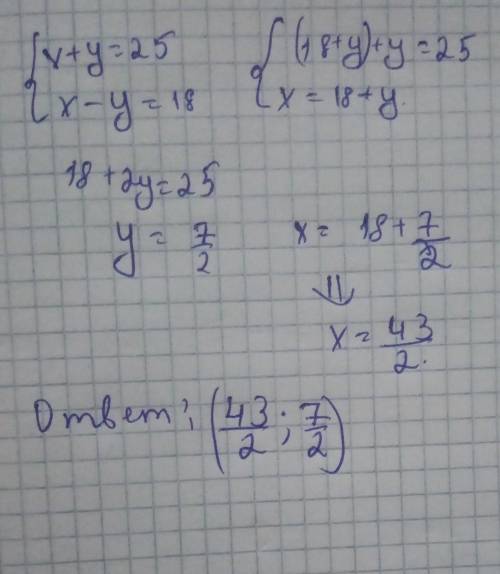 { x+y=25   { (18+y)+y=25
{ x-y=18   { x=18+y.
18+2y=25
y = 7/2   x= 18+7/2
⇓
x=43/2.
Ответ: (43/2; 7/2)